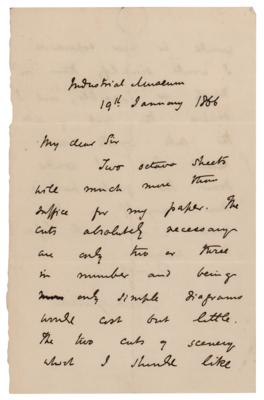 Industrial Museum
19th January 1866
My dear Sir
Two octavo sheets
will much more than
suffice for my paper. The
cuts absolutely necessary
are only two or three
in number and being
only simple diagrams
would cost but little.
The two cuts of scenery
which I should like